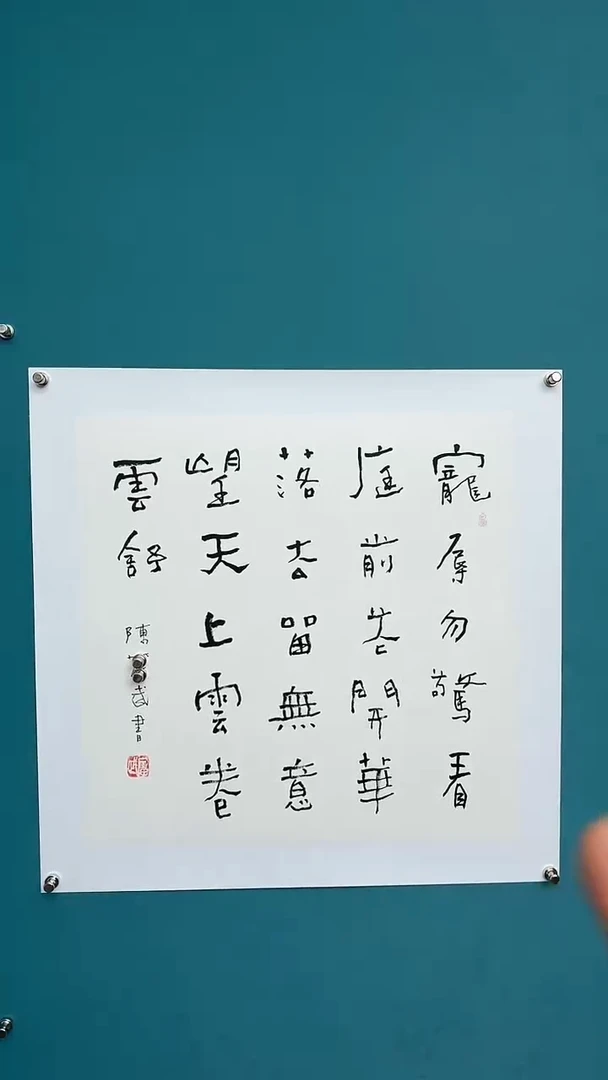 寵辱勿驚看
庭前花開華
落去留無意
望天上雲卷
雲舒
陳 書